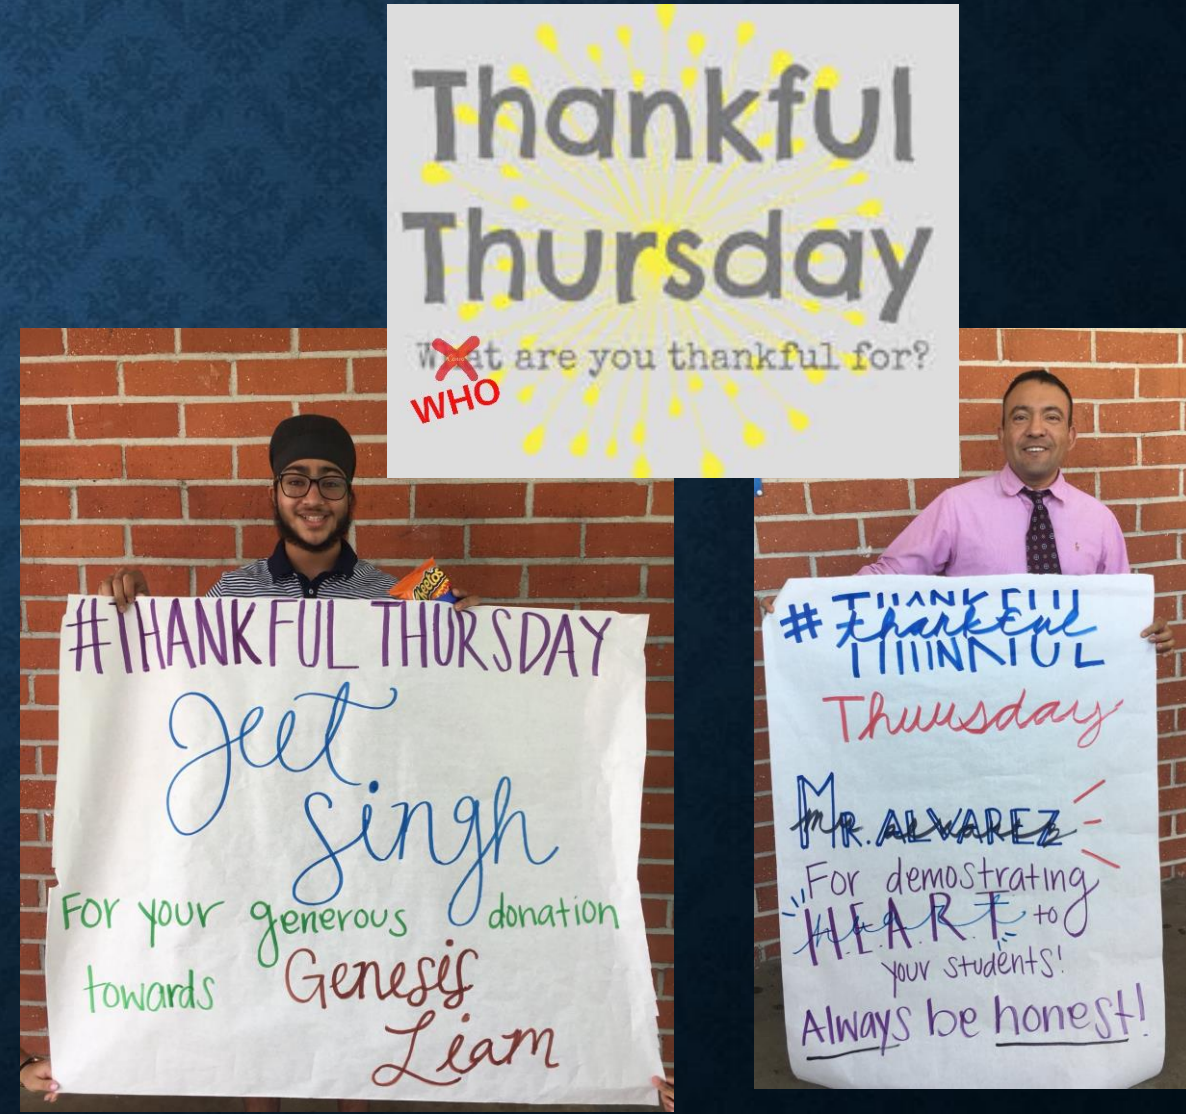 Thankful
Thursday
What are you thankful for?
WHO
Cheetos
#THANKFUL THURSDAY
Jeet
singh
For your generous donation
towards Genesis
Liam
# Thankful
Thuusday
MR. ALVAREZ
For demostrating
H.E.A.R.T to
your students!
Always be honest!